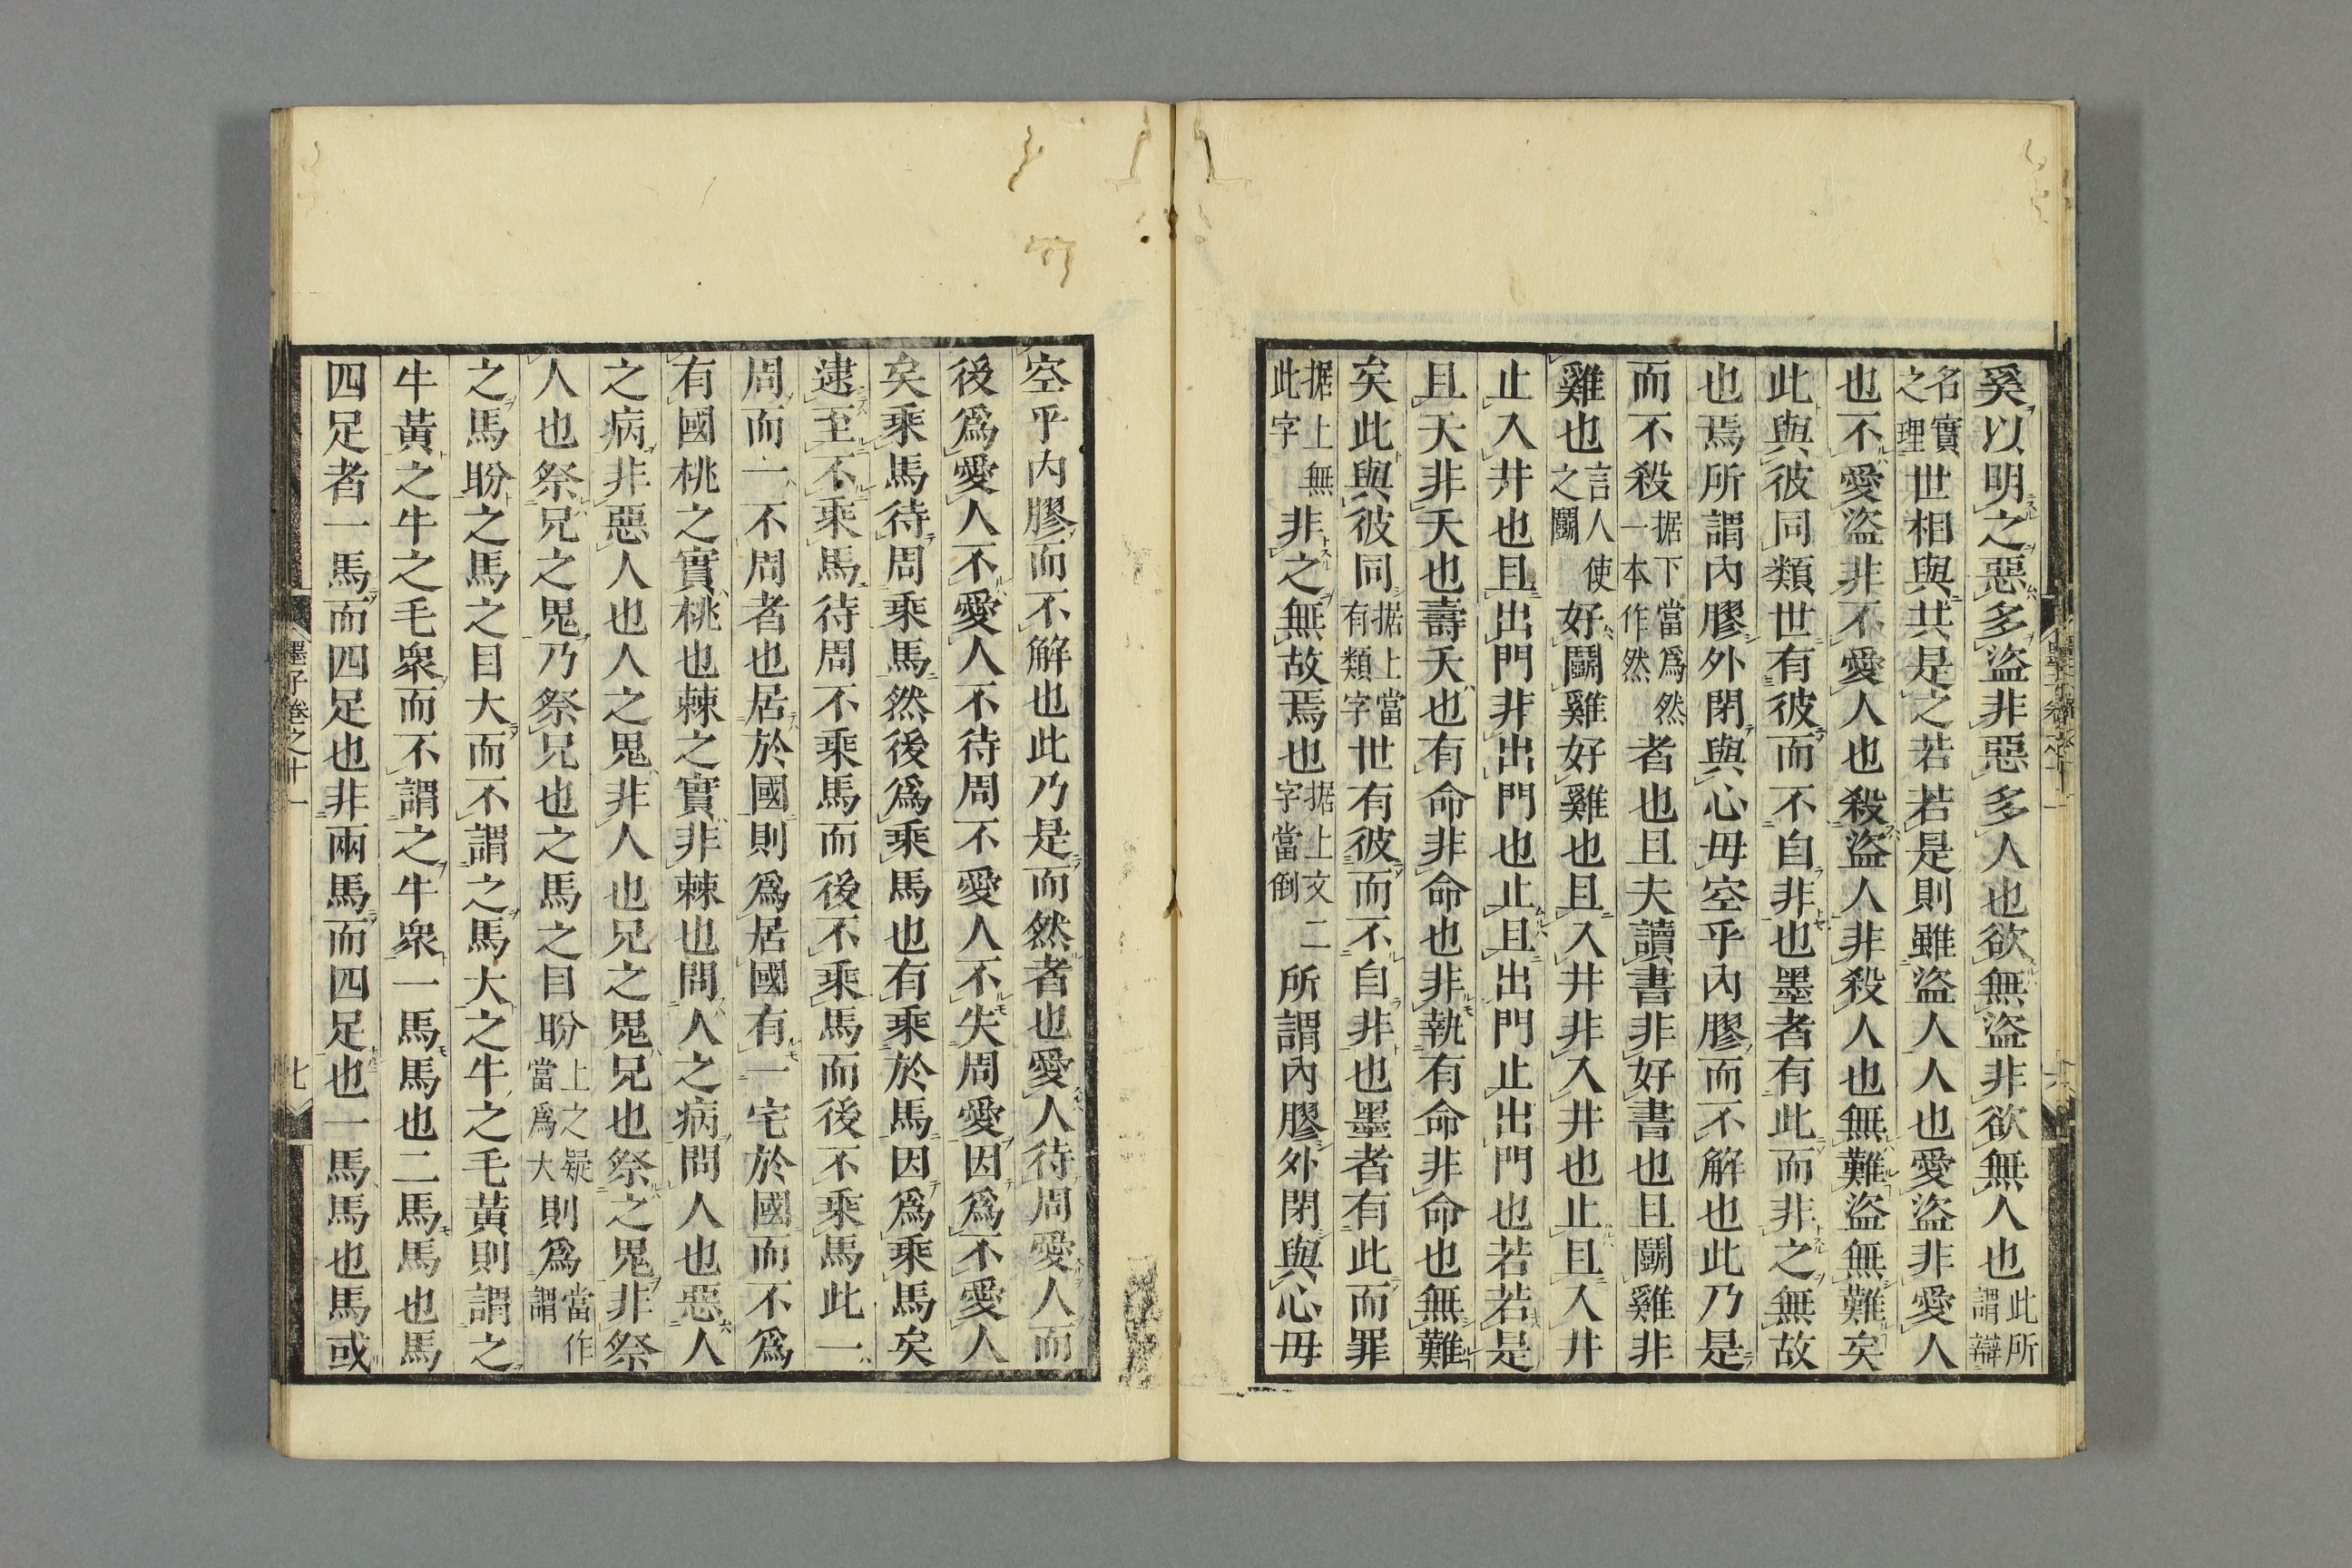 奚以明之惡多盜非惡多人也欲無盜非欲無人也此所謂辯
名實之理世相與共是之若若是則雖盜人人也愛盜非愛人
也不愛盜非不愛人也殺盜人非殺人也無難盜無難矣
此與彼同類世有彼而不自非也墨者有此而非之無故
也焉所謂內膠外閉與心毋空乎內膠而不解也此乃是
而不殺据下當爲然一本作然者也且夫讀書非好書也且鬭雞非
雞也言人使之鬭好鬭雞好雞也且入井非入井也止且入井
止入井也且出門非出門也止且出門止出門也若若是
且夭非夭也壽夭也有命非命也非執有命非命也無難
矣此與彼同据上當有類字世有彼而不自非也墨者有此而罪
据上無此字非之無故焉也据上文二字當倒所謂內膠外閉與心毋
空乎內膠而不解也此乃是而然者也愛人待周愛人而
後爲愛人不愛人不待周不愛人不失周愛因爲不愛人
矣乘馬待周乘馬然後爲乘馬也有乘於馬因爲乘馬矣
逮至不乘馬待周不乘馬而後不乘馬而後不乘馬此一
周而一不周者也居於國則爲居國有一宅於國而不爲
有國桃之實桃也棘之實非棘也問人之病問人也惡人
之病非惡人也人之鬼非人也兄之鬼兄也祭之鬼非祭
人也祭兄之鬼乃祭兄也之馬之目盼上之疑當爲大則爲當作謂
之馬盼之馬之目大而不謂之馬大之牛之毛黃則謂之
牛黃之牛之毛衆而不謂之牛衆一馬馬也二馬馬也馬
四足者一馬而四足也非兩馬而四足也一馬馬也馬或
墨子卷之十一
七